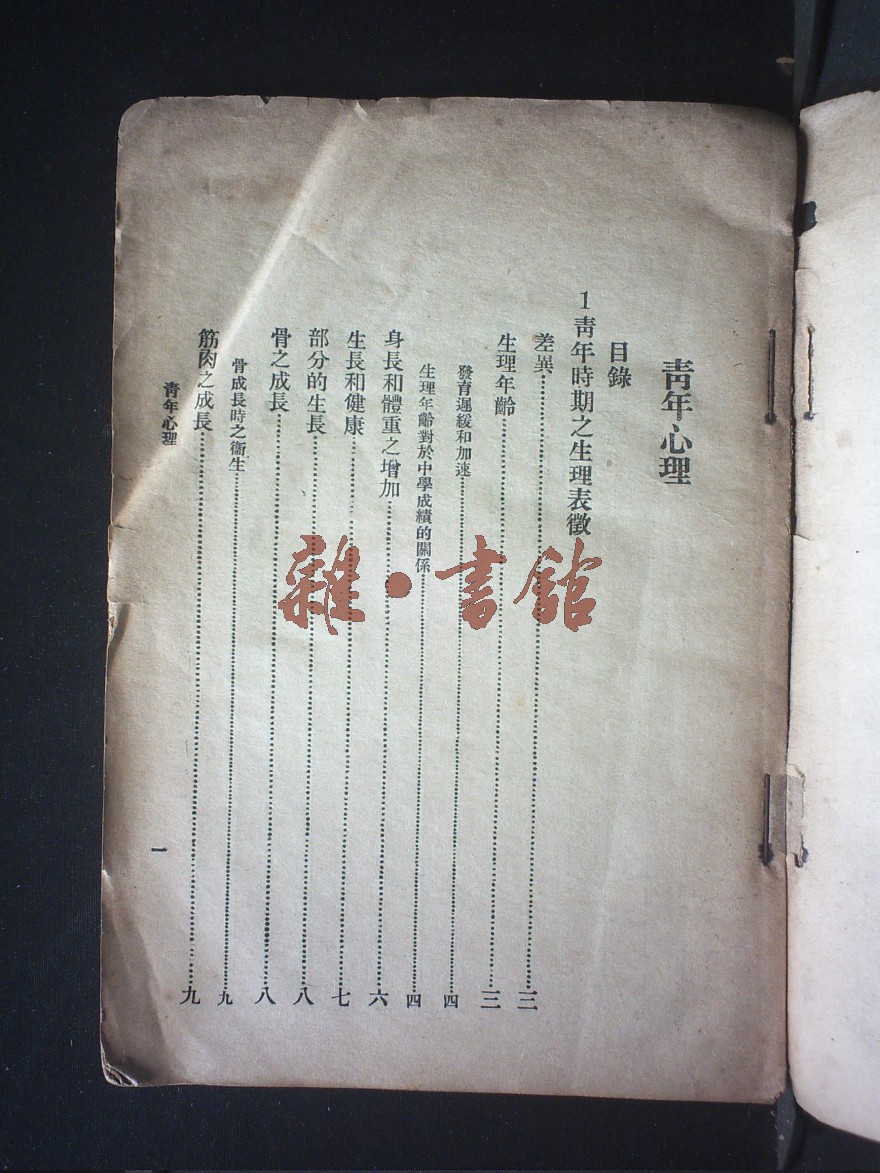 青年心理
目錄
1青年時期之生理表徵
差異……三
生理年齡……三
發育遲緩和加速……四
生理年齡對於中學成績的關係……四
身長和體重之增加……六
生長和健康……七
部分的生長……八
骨之成長……八
骨成長時之衞生……九
筋肉之成長……九
青年心理
一
雜·書館